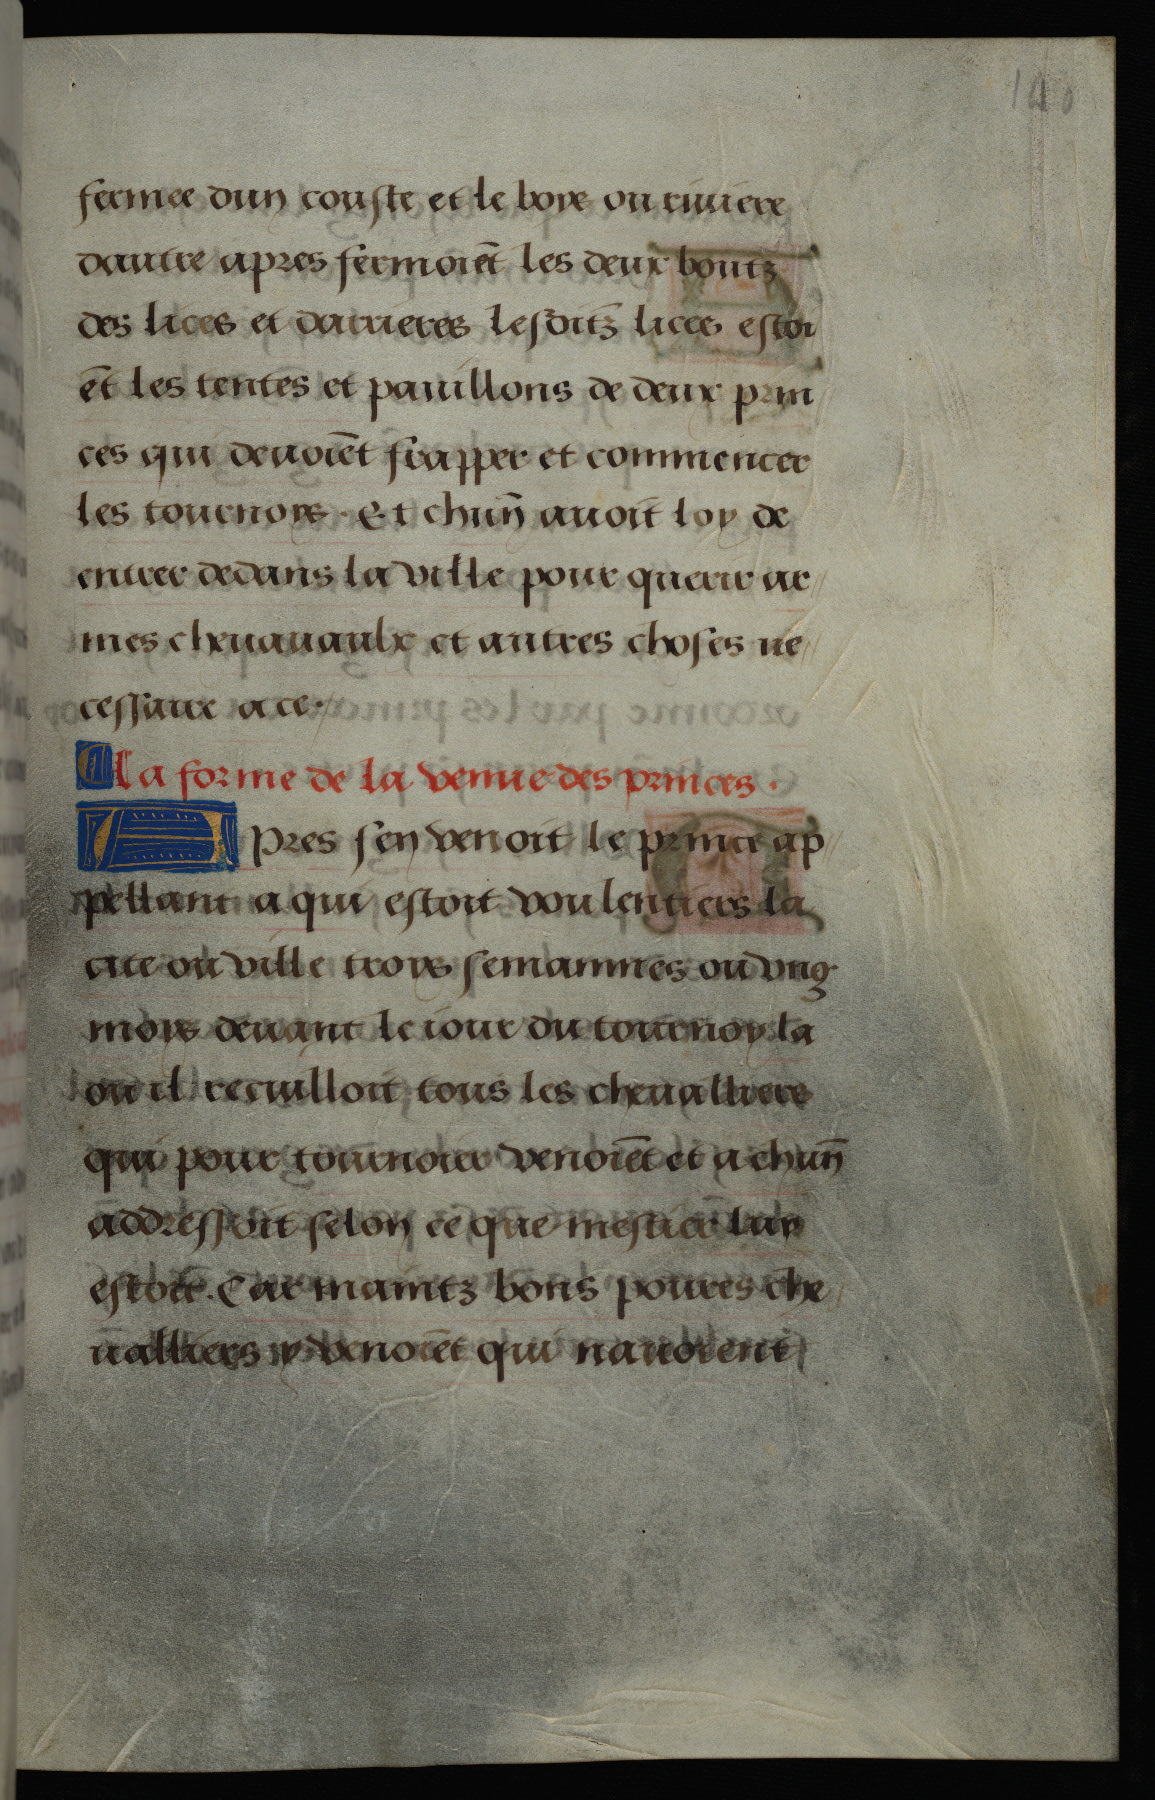 140
fermee dun couste et le boys ou riuiere
dautre apres fermoiēt les deux boutz
des lices et darrieres lesditz lices estoi
ēt les tentes et pauillons de deux prin
ces qui deuoiēt frapper et commencer
les tournoys . Et chūn auoit loy de
entrer dedans la ville pour querir ar
mes cheuauaulx et autres choses ne
cessaire a ce .
La forme de la venue des princes .
Apres sen venoit le prince ap
pellant a qui estoit voulentiers la
cite ou ville troys semainnes ou vng
moys deuant le iour du tournoy la
ou il recuilloit tous les cheualliers
qui pour tournoier venoiēt et a chūn
addressoit selon ce que mestier luy
estoit . Car maintz bons poures che
ualliers y venoiēt qui nauoient